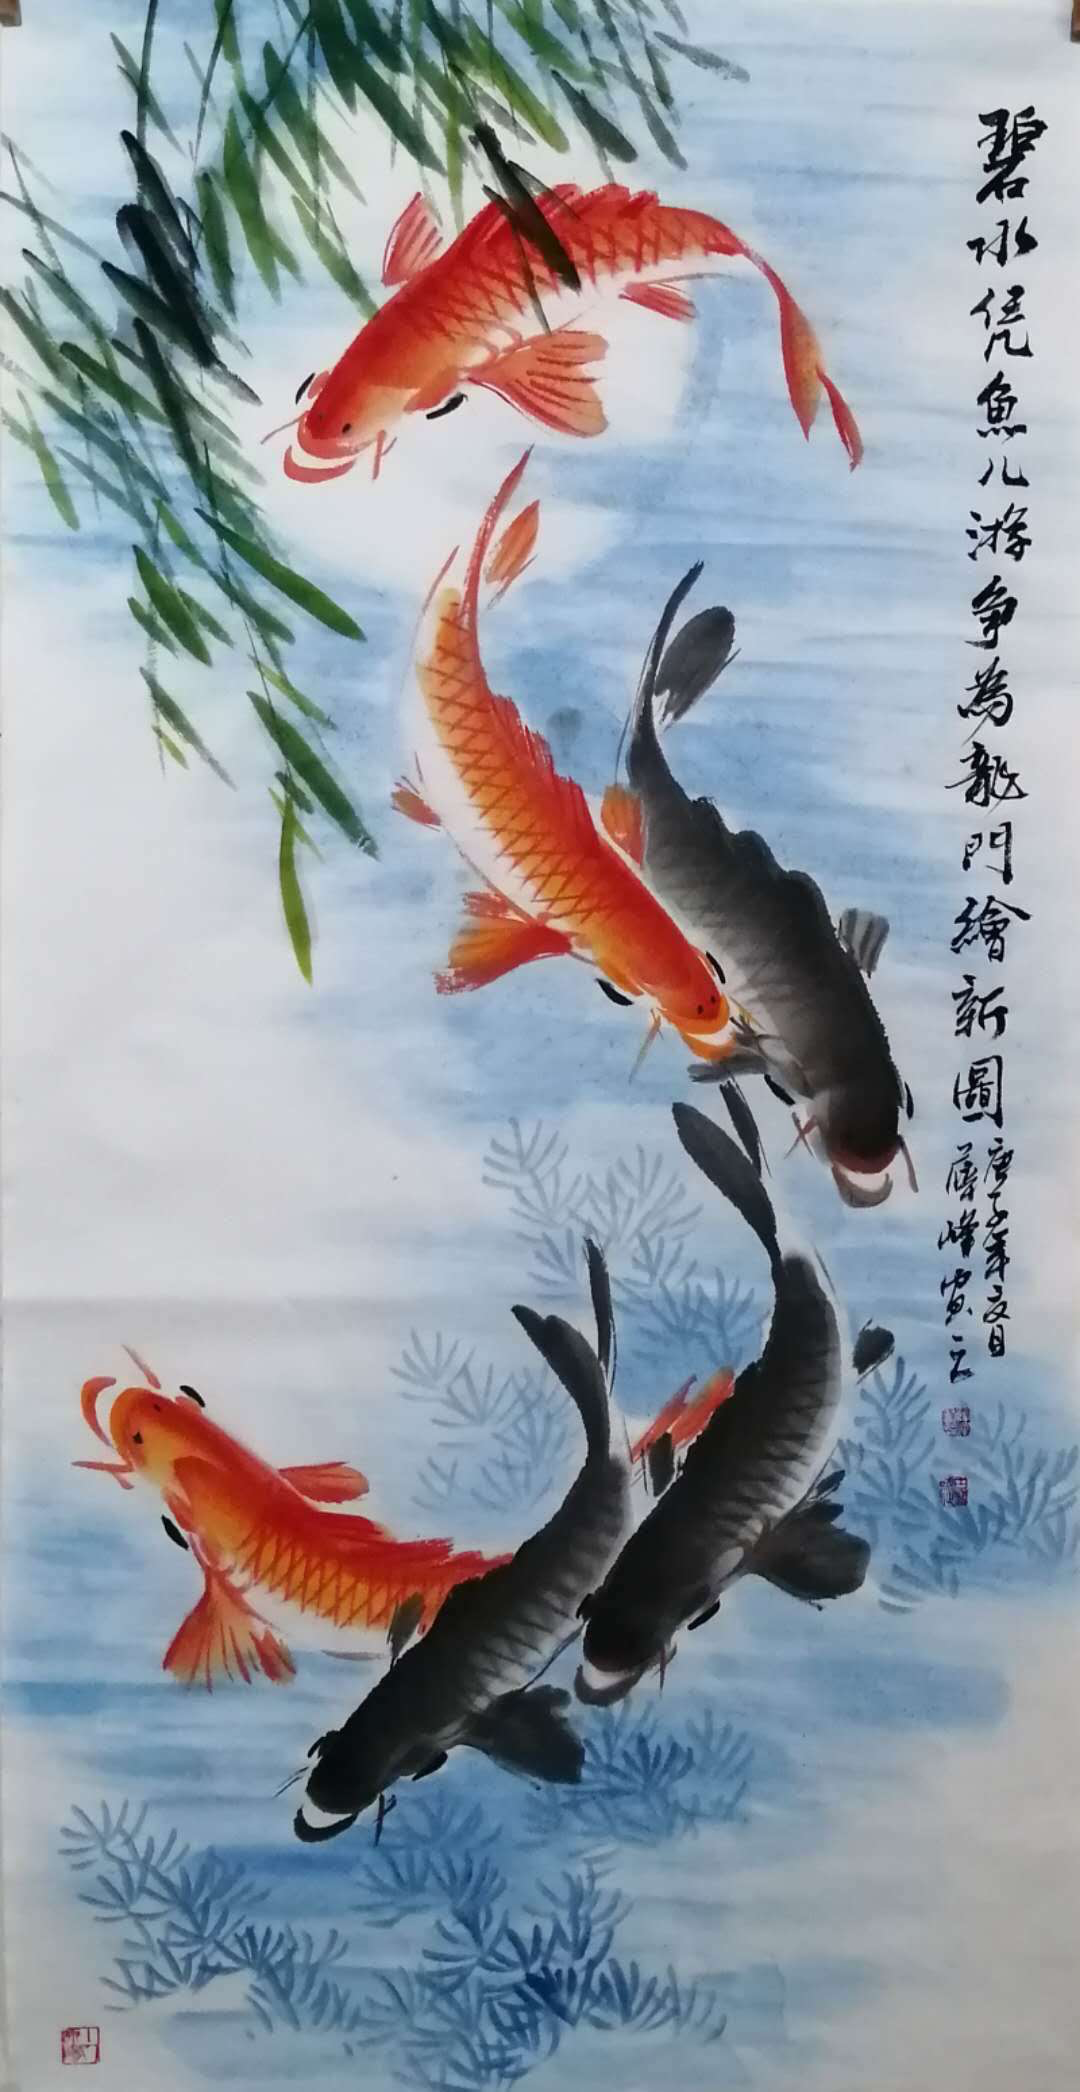 碧水凭魚儿游争為龍門繪新圖
庚子年夏月
薛峰寫之